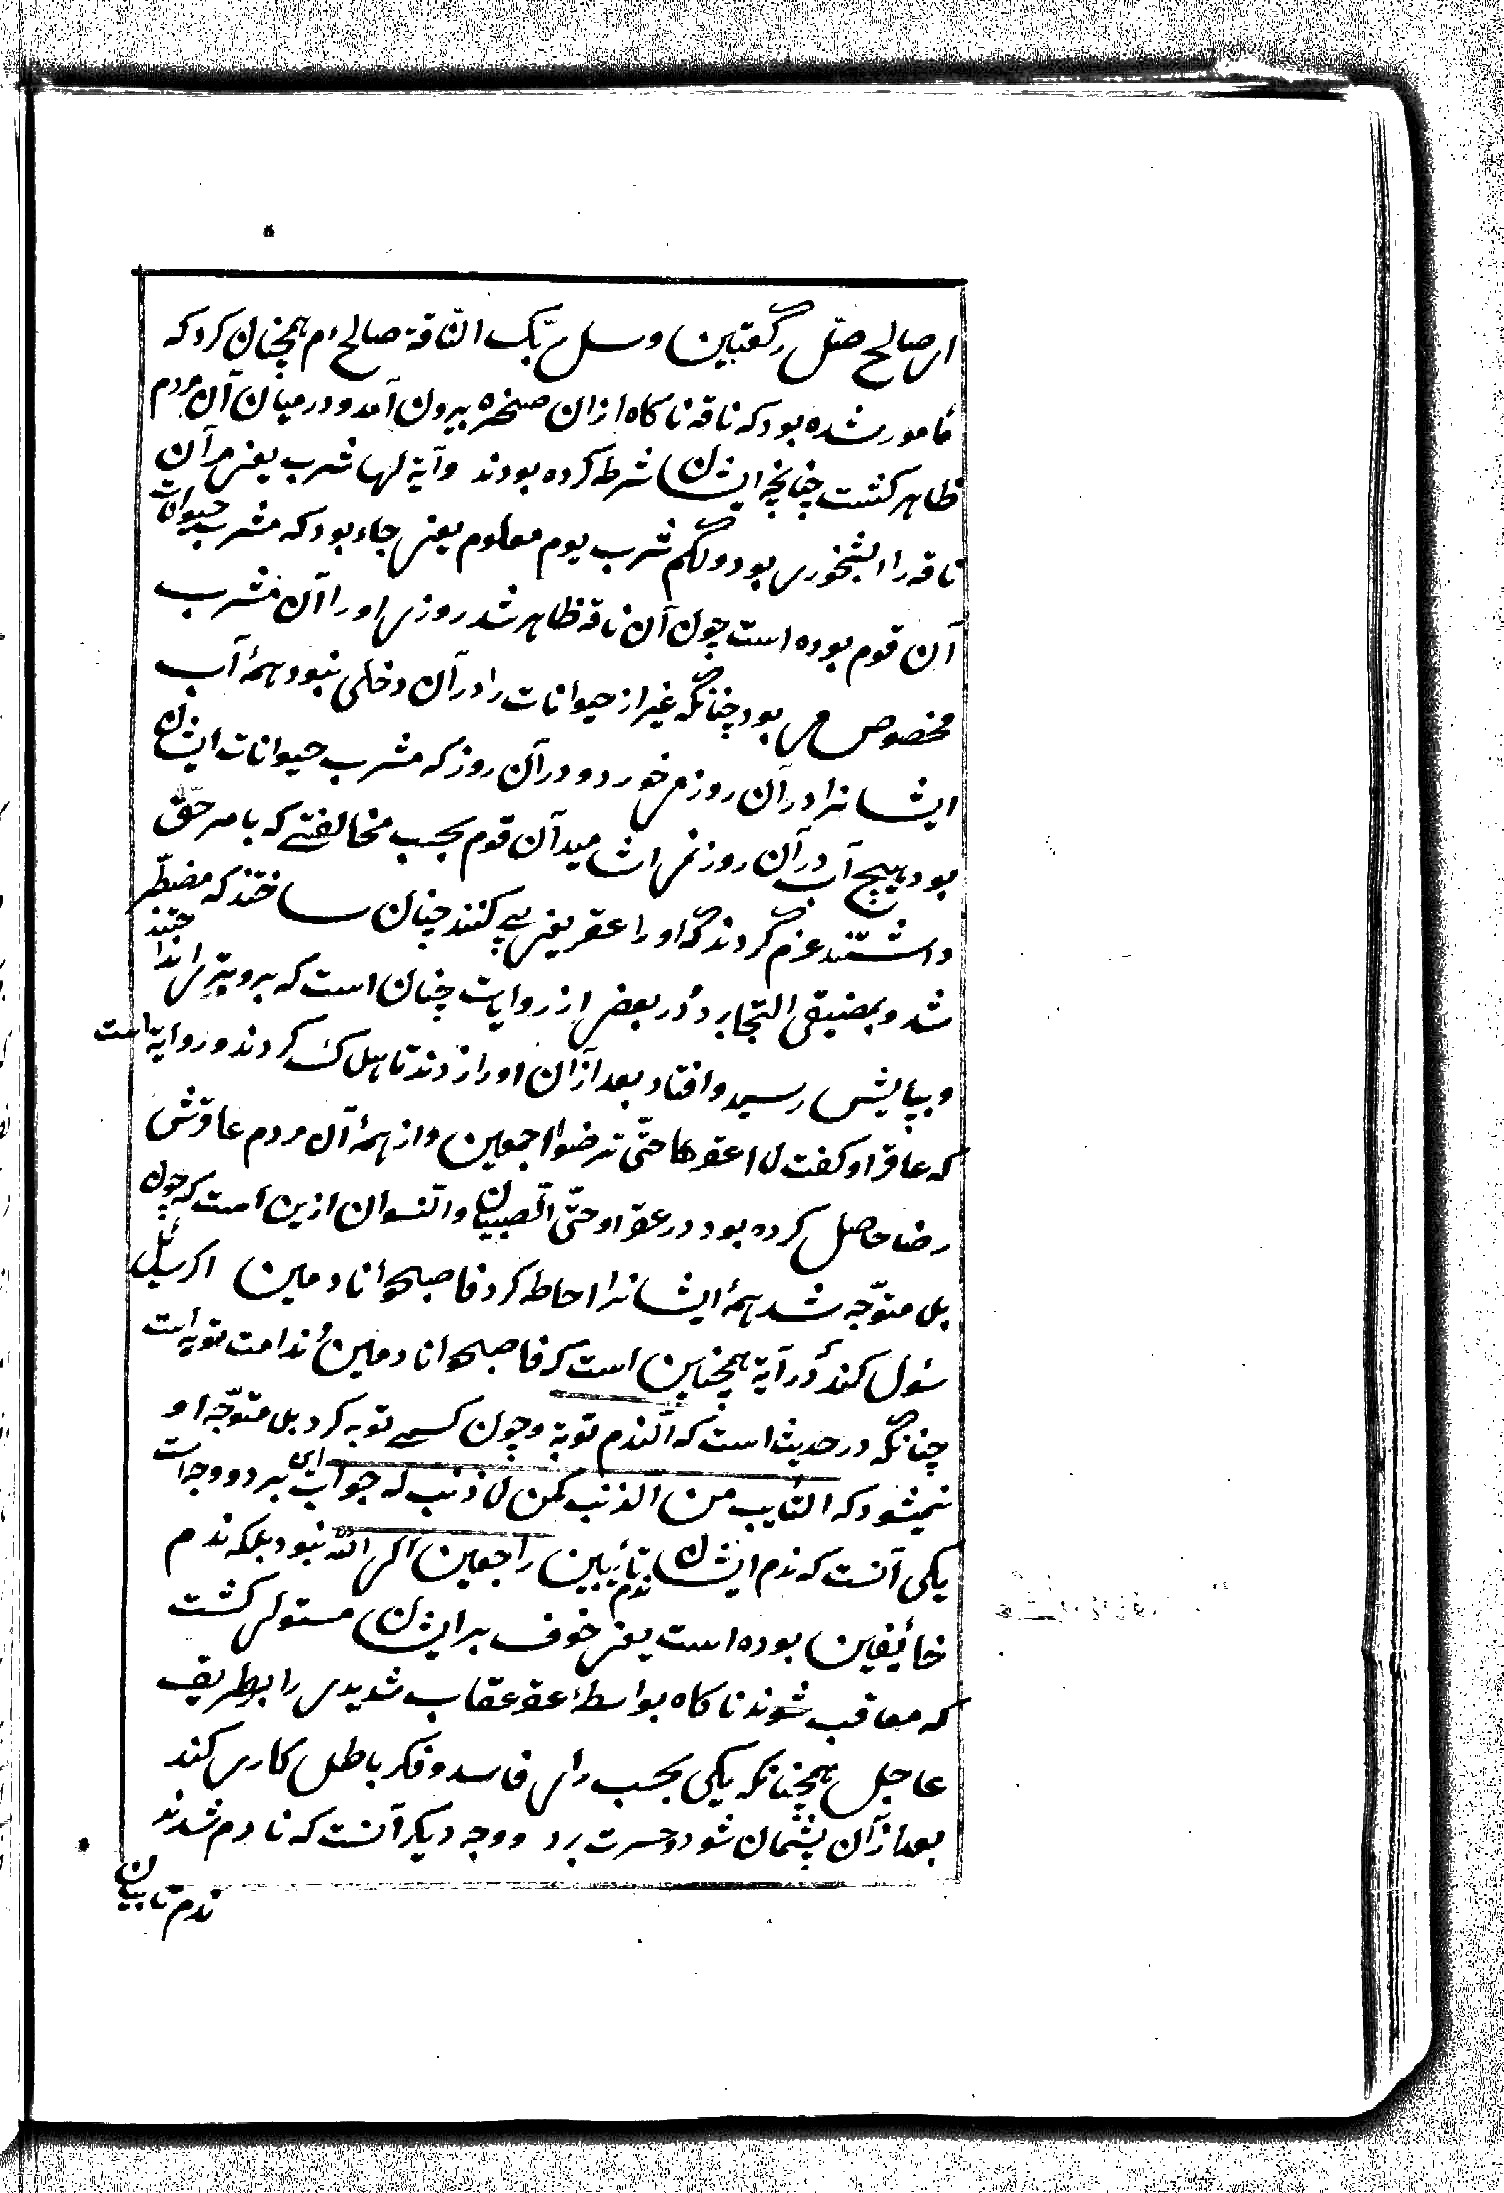 ای صالح صلّ رکعتین وسل ربّک الناقة صالح ع م همچنان کرد که
مأمور شده بود که ناقه ناکاه ازان صخره بیرون آمد و در میان آن مردم
ظاهر کشت چنانچه ایشان شرط کرده بودند وآیة لها شرب یعنی مر آن
ناقه را ابشخوری بود ولکم شرب یوم معلوم یعنی جاء بود که مشرب حیوانات
آن قوم بوده است چون آن ناقه ظاهر شد روزی او را آن مشرب
مخصوص می بود چنانکه غیر از حیوانات را در آن دخلی نبود همهٔ آب
ایشانرا در آن روز می خورد و در آن روز که مشرب حیوانات ایشان
بود هیچ آب در آن روز نمی اشامید آن قوم بحسب مخالفتی که بامر حقّ
داشتند عزم کردند که او را عقر یعنی پی کنند چنان ساختند که مضطّر
شد و بمضیقی التجا برد و در بعضی از روایات چنان است که برو تیری انداختند
و بپایش رسید و افتاد بعد ازان او را زدند تا هلاک کردند و روایة است
که عاقر او کفت لا اعقرها حتّی ترضوا اجمعین و از همهٔ آن مردم عاقرش
رضا حاصل کرده بود در عقر او حتّی الصبیان والنسوان ازین است که چون
بلا متوّجه شد همهٔ ایشانرا احاطه کرد فاصبحوا نادمین اکر سائل
سئول کند که در آیة همچنین است که فاصبحوا نادمین و ندامت توبه است
چنانکه در حدیث است که الندم توبة و چون کسی توبه کرد بلا متوّجه او
نمیشود که التایب من الذنب کمن لا ذنب له جواب این بر دو وجه است
یکی آنست که ندم ایشان ندم تایبین راجعین الی الله نبود بلکه ندم
خایفین بوده است یعنی خوف بر ایشان مستولی کشت
که معاقب شوند ناکاه بواسطهٔ عقر عقاب شدیدی را بطریق
عاجل همچنانکه یکی بحسب رای فاسد و فکر باطل کاری کند
بعد از آن پشیمان شود و حسرت برد و وجه دیکر آنست که نادم شدند
ندم تایبان